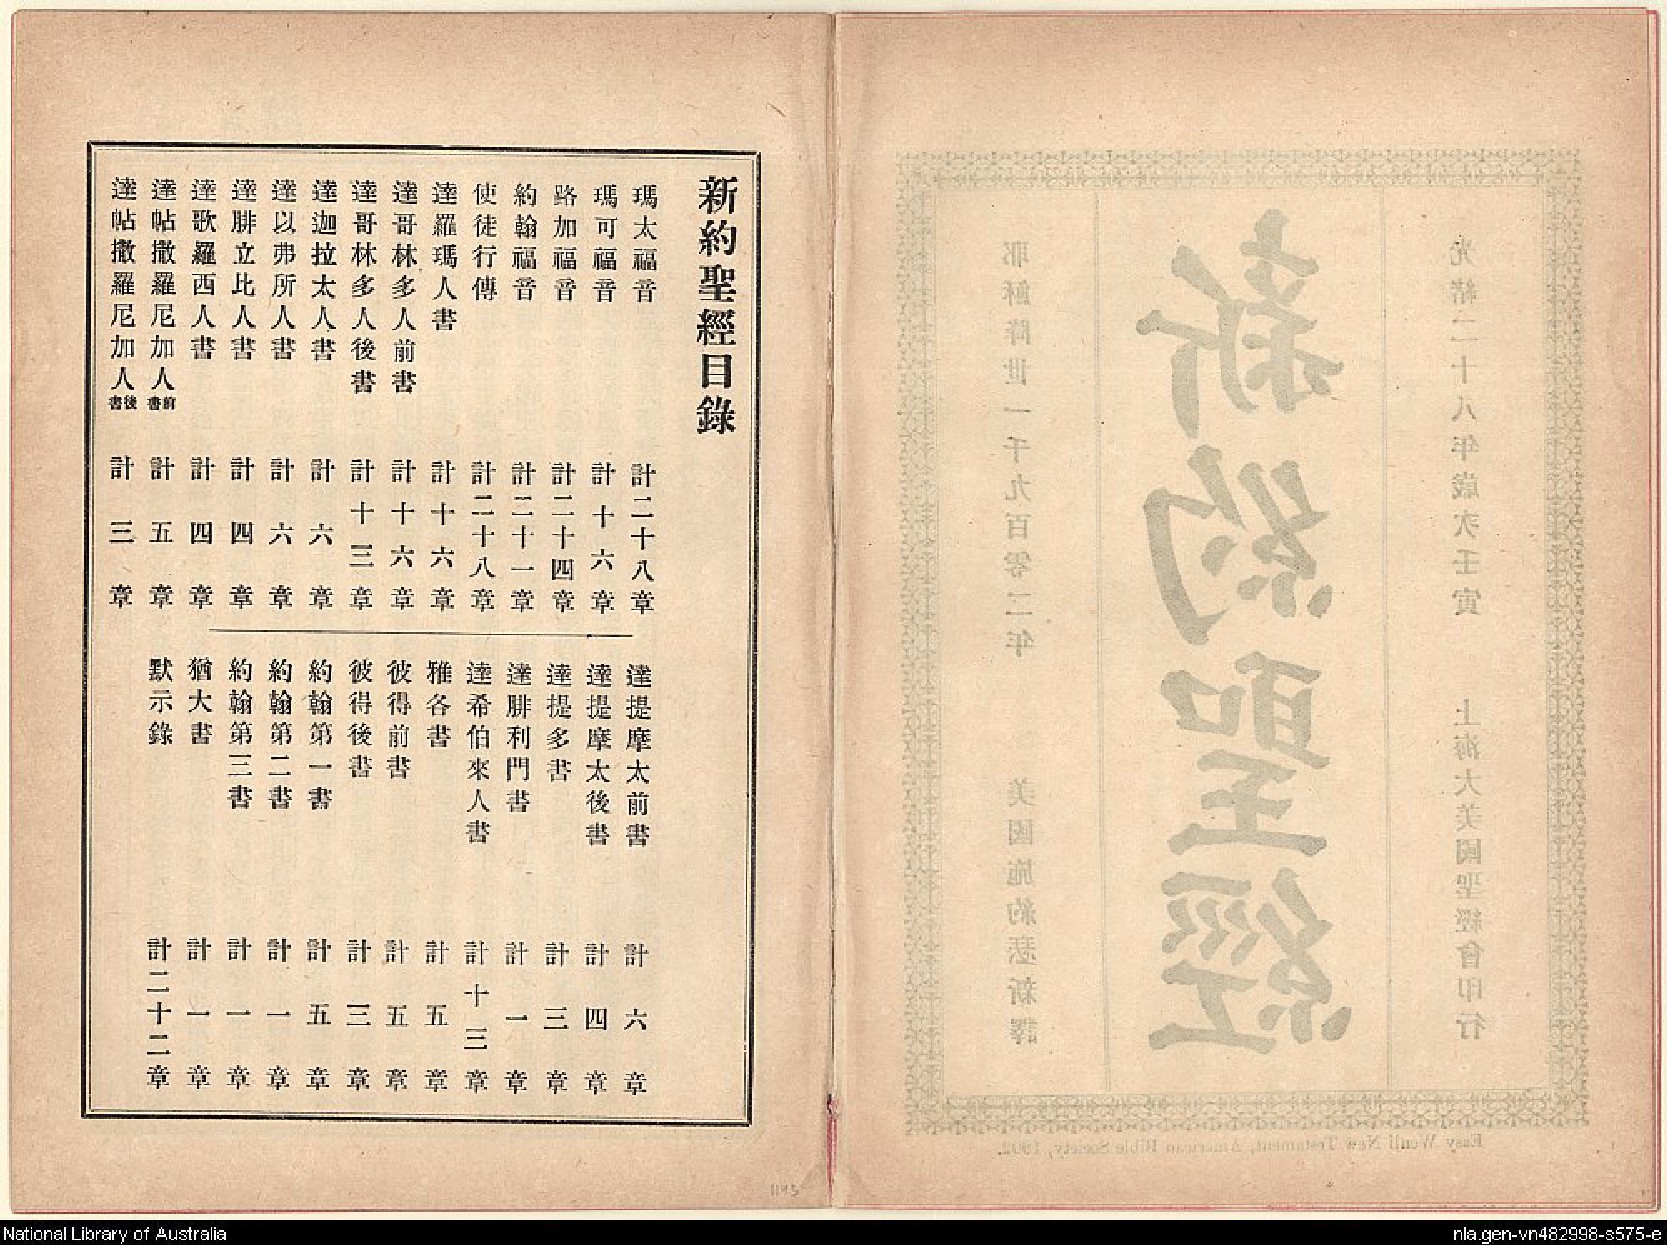 光緒二十八年歲次壬寅
上海大美國聖經會印行
新約聖經
耶穌降世一千九百零二年
美國施約瑟新譯
Easy Wenli New Testament, American Bible Society, 1902.
新約聖經目錄
瑪太福音 計二十八章
瑪可福音 計十六章
路加福音 計二十四章
約翰福音 計二十一章
使徒行傳 計二十八章
達羅瑪人書 計十六章
達哥林多人前書 計十六章
達哥林多人後書 計十三章
達迦拉太人書 計六章
達以弗所人書 計六章
達腓立比人書 計四章
達歌羅西人書 計四章
達帖撒羅尼加人前書 計五章
達帖撒羅尼加人後書 計三章
達提摩太前書 計六章
達提摩太後書 計四章
達提多書 計三章
達腓利門書 計一章
達希伯來人書 計十三章
雅各書 計五章
彼得前書 計五章
彼得後書 計三章
約翰第一書 計五章
約翰第二書 計一章
約翰第三書 計一章
猶大書 計一章
默示錄 計二十二章
1193
National Library of Australia
nla.gen-vn482998-s575-e